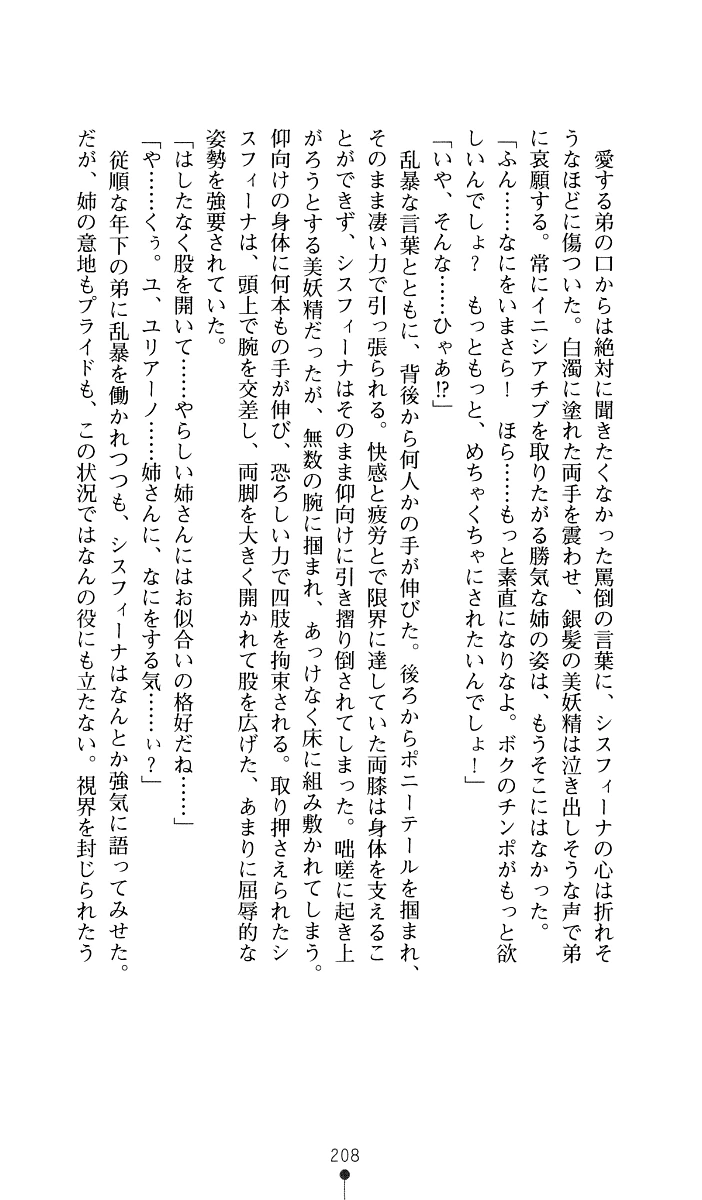 愛する弟の口からは絶対に聞きたくなかった罵倒の言葉に、シスフィーナの心は折れそ
うなほどに傷ついた。白濁に塗れた両手を震わせ、銀髪の美妖精は泣き出しそうな声で弟
に哀願する。常にイニシアチブを取りたがる勝気な姉の姿は、もうそこにはなかった。
「ふん……なにをいまさら！　ほら……もっと素直になりなよ。ボクのチンポがもっと欲
しいんでしょ？　もっともっと、めちゃくちゃにされたいんでしょ！」
「いや、そんな……ひゃあ!?」
乱暴な言葉とともに、背後から何人かの手が伸びた。後ろからポニーテールを掴まれ、
そのまま凄い力で引っ張られる。快感と疲労とで限界に達していた両膝は身体を支えるこ
とができず、シスフィーナはそのまま仰向けに引き摺り倒されてしまった。咄嗟に起き上
がろうとする美妖精だったが、無数の腕に掴まれ、あっけなく床に組み敷かれてしまう。
仰向けの身体に何本もの手が伸び、恐ろしい力で四肢を拘束される。取り押さえられたシ
スフィーナは、頭上で腕を交差し、両脚を大きく開かれて股を広げた、あまりに屈辱的な
姿勢を強要されていた。
「はしたなく股を開いて……やらしい姉さんにはお似合いの格好だね……」
「や……くぅ。ユ、ユリアーノ……姉さんに、なにをする気……ぃ？」
従順な年下の弟に乱暴を働かれつつも、シスフィーナはなんとか強気に語ってみせた。
だが、姉の意地もプライドも、この状況ではなんの役にも立たない。視界を封じられたう
208